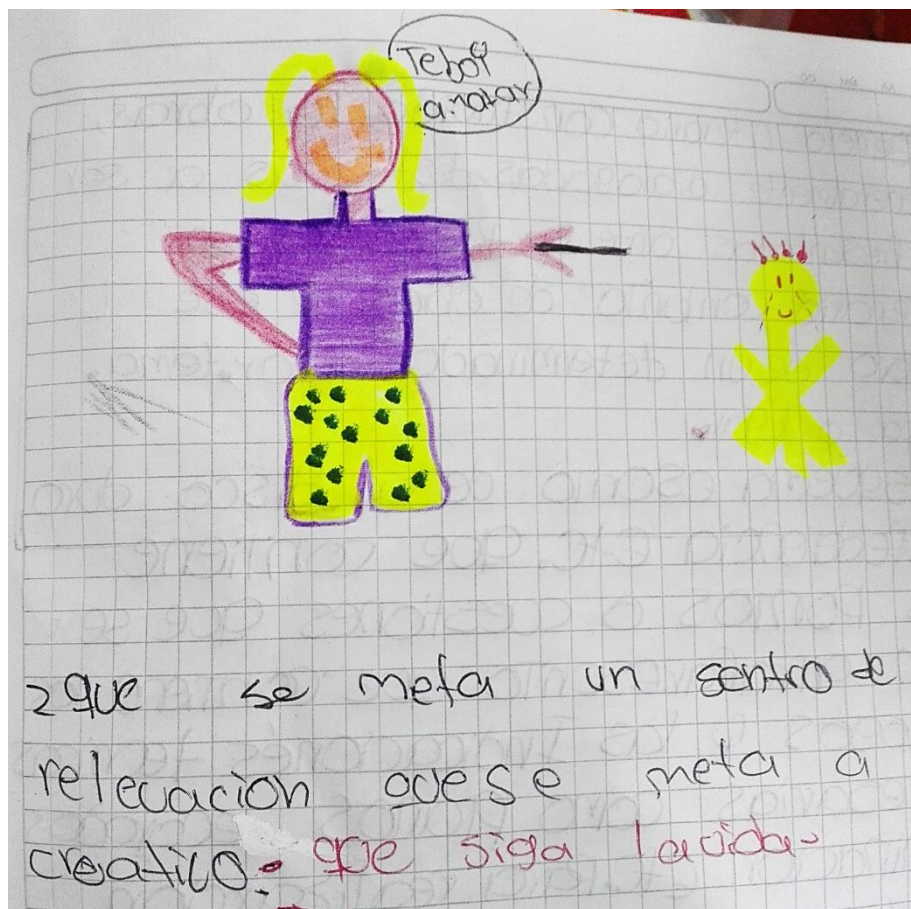 Teboy
a matar
2 que se meta un sentro de
relevacion que se meta a
creativo: que siga lavida